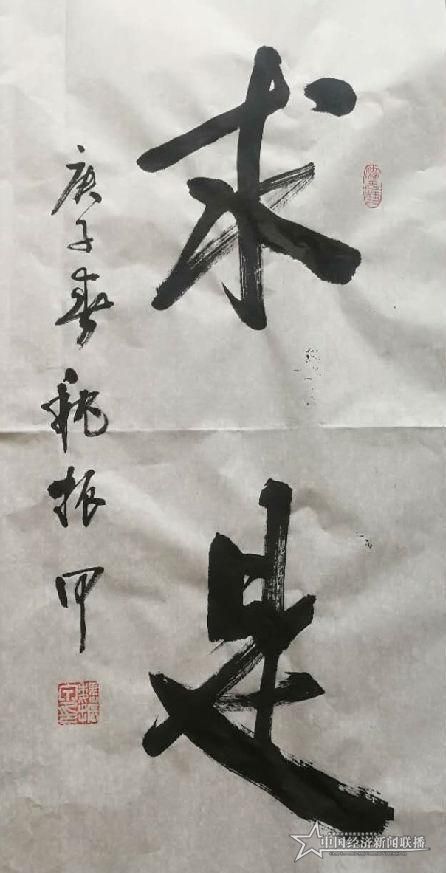 求是
庚子春魏振甲
中国经济新闻联播